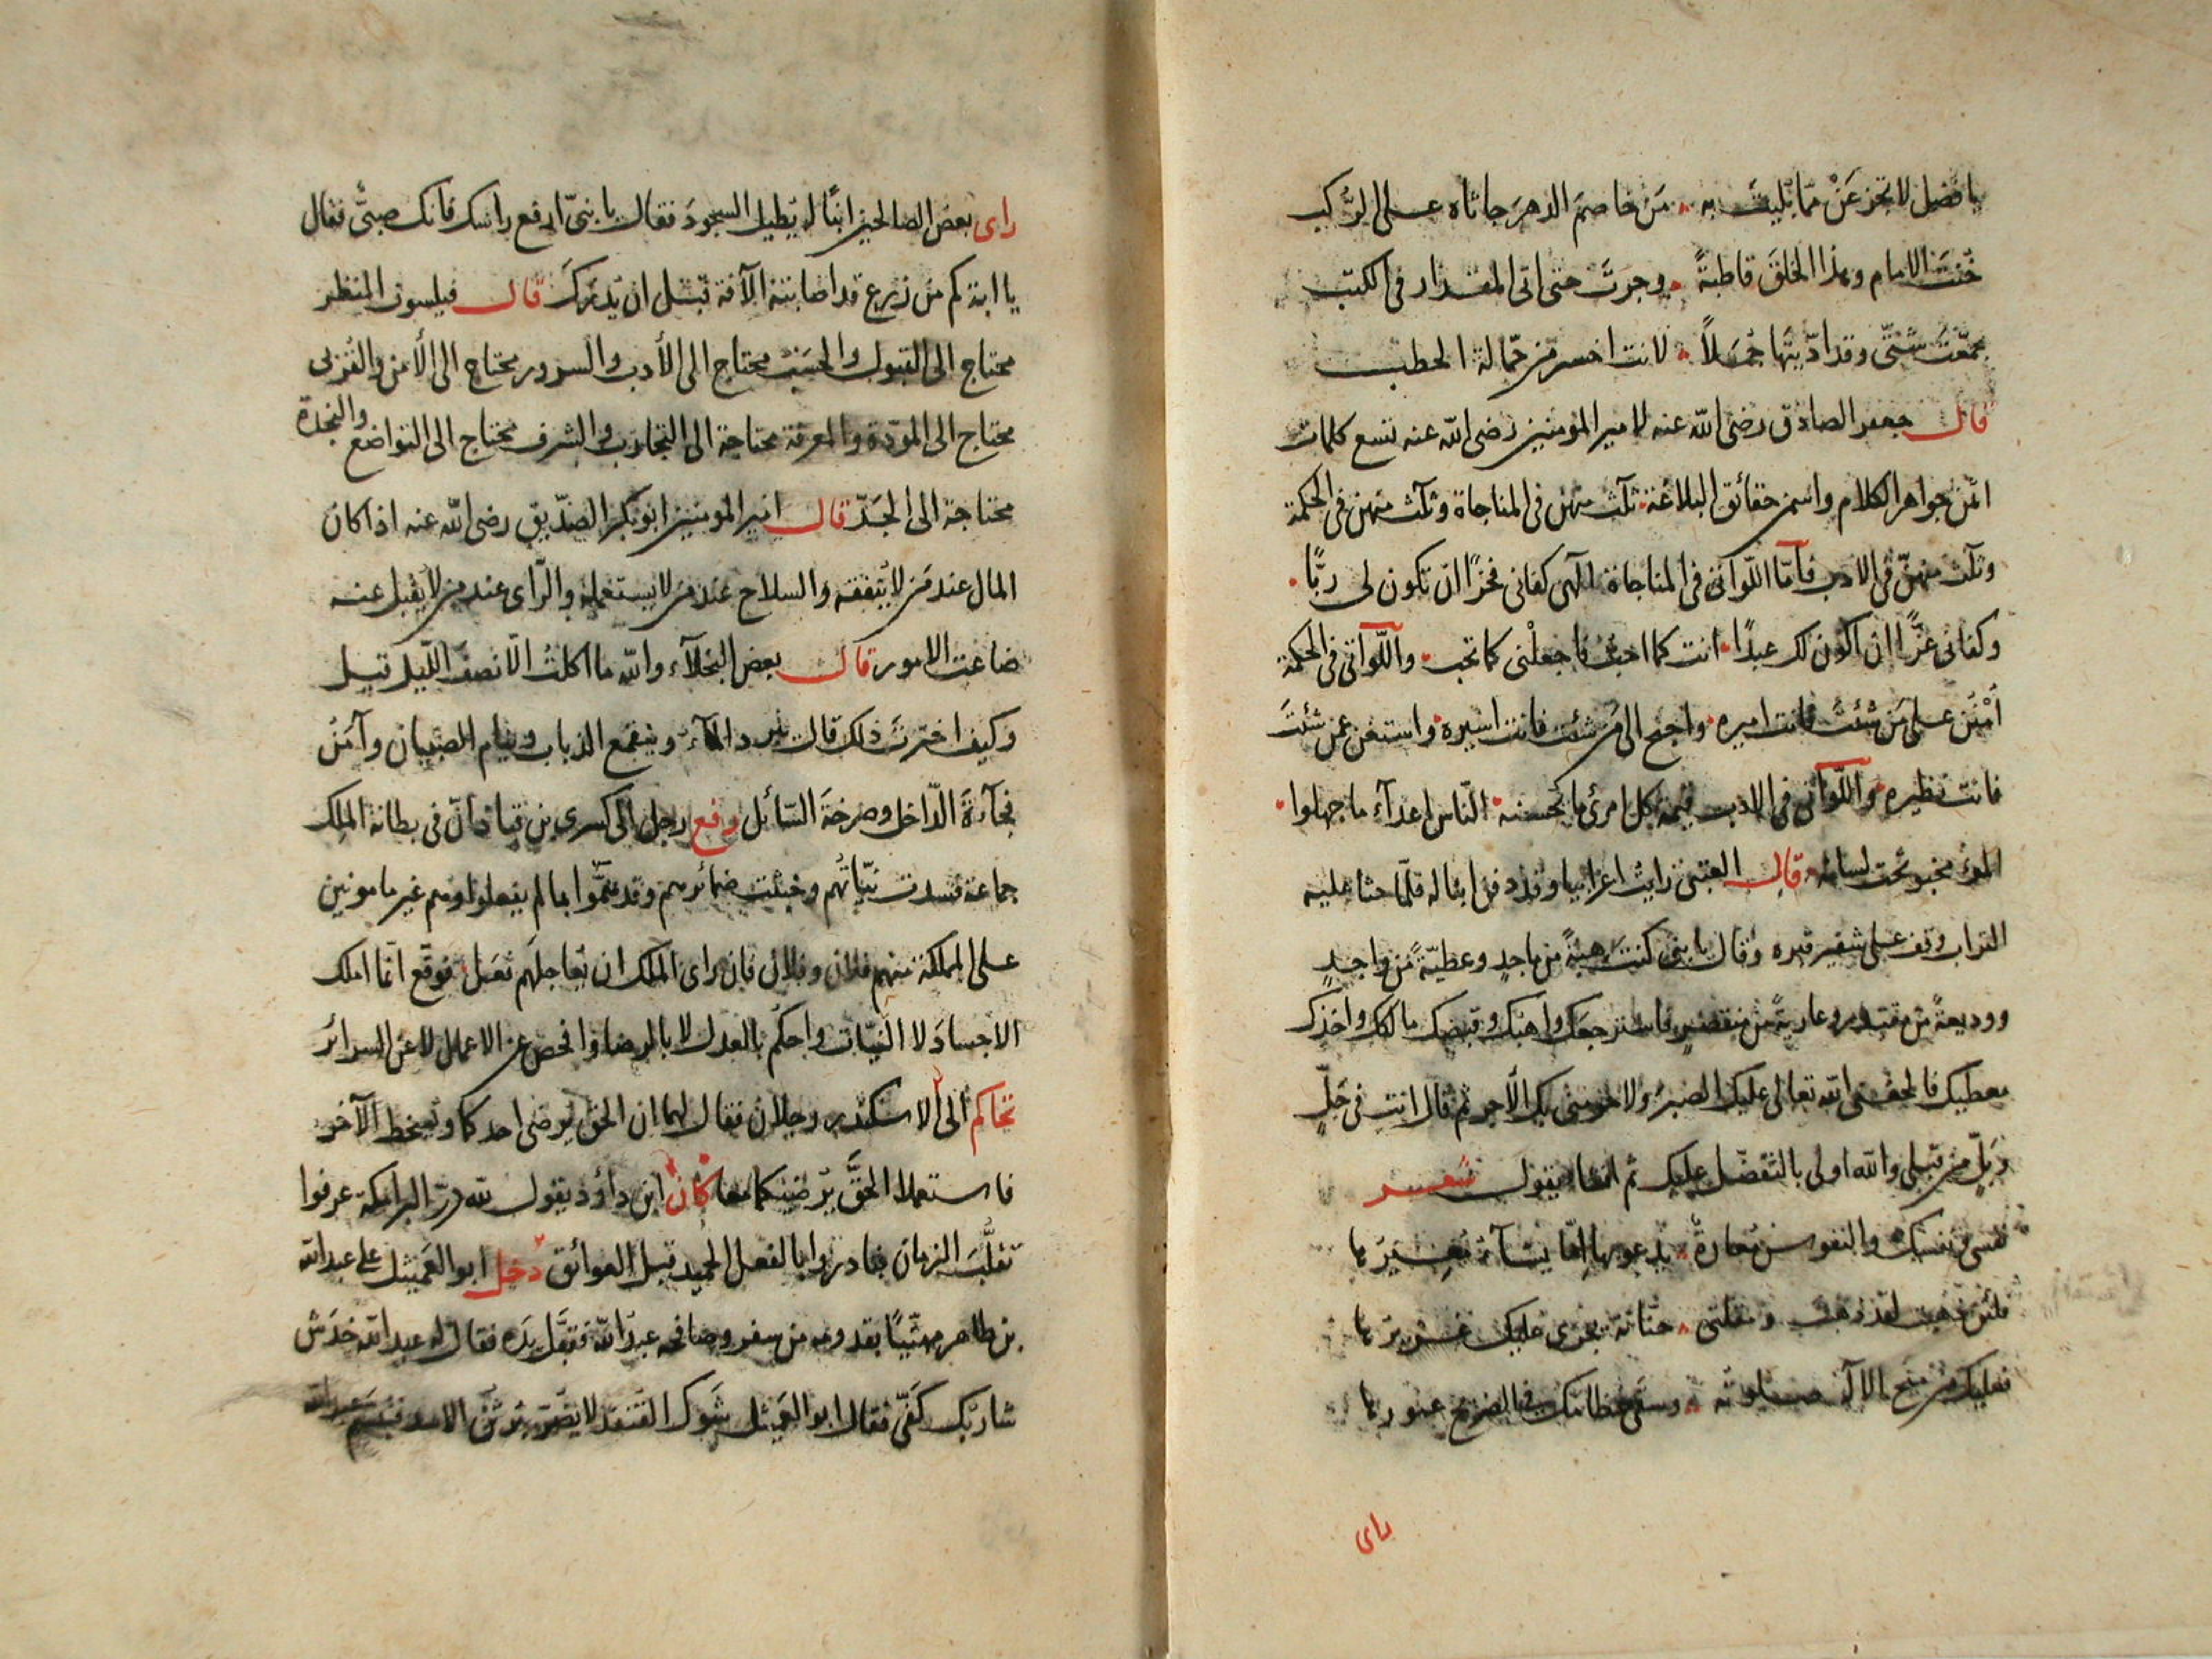 يا فضيل لا تجزعن مما بليت به من خاصم الدهر جاثاه على الركب
خنت الامام وهذا الخلق قاطبةً وجرت حتى اتى المقدار في الكتب
جمعت شتى وقد اديتها جملاً لانت اخسر من حمالة الحطب
قال جعفر الصادق رضى الله عنه لامير المؤمنين رضى الله عنه تسع كلمات
اثمن جواهر الكلام حقائق البلاغة ثلث منهن فى المناجاة وثلث منهن فى الحكمة
وثلث منهن فى الادب فاما اللواتى فى المناجاة الهى كفانى فخرًا ان تكون لى ربًا
وكفانى عزًا ان اكون لك عبدًا انت كما احب فاجعلنى كما تحب واللواتى فى الحكمة
امنن على من شئت فانت اميره واحتج الى من شئت فانت اسيره واستغن عمن شئت
فانت نظيره واللواتى فى الادب قيمة كل امرئ ما يحسنه الناس اعدآء ما جهلوا
المرء مخبو تحت لسانه قال العتبى رايت اعرابيا وقد دفن ابنا له فلما حثا عليه
التراب وقف على شفير قبره وقال يا بنى كنت هبةً من ماجدٍ وعطيةً من واجدٍ
ووديعةً من مقتدر وعاريةً من فاسترجعك واهبك وقبضك مالكك واخذك
معطيك الله تعالى عليك الصبر ولا حرمنى بك الاجر ثم قال انت فى حلٍ
وبلٍ من قبلى والله اولى بالتفضل عليك ثم انشا يقول شعر
نفسى والنفوس معارة يدعو بها يشآء معيرها
فلئن ذهبت لقد ذهبت ومقلتى حنانة تجرى عليك غزيرها
فعليك من الاله صلوته وسقى عظامك فى الضريح
راى
راى بعض الصالحين ابنًا له يطيل السجود فقال يا بنى ارفع راسك فانك صبى فقال
يا ابة كم من زرع قد اصابته الآفة قبل ان يدرك قال فيلسوف المنظر
محتاج الى القبول والحسب محتاج الى الأدب والسرور محتاج الى الأمن والقربى
محتاج الى المودة والمعرفة محتاجة الى التجارب والشرف محتاج الى التواضع والنجدة
محتاجة الى الجد قال امير المومنين ابو بكر الصديق رضى الله عنه اذا كان
المال عند من لا ينفقه والسلاح عند من لا يستعمله والراى عند من لا يقبل عنه
ضاعت الامور قال بعض البخلآء والله ما اكلت الا نصف الليل قيل
وكيف اخترت ذلك قال يبرد المآء وينقمع الذباب وينام الصبيان وآمن
فجآءة الداخل وصرخة السائل رفع رجل الى كسرى بن قباذ ان فى بطانة الملك
جماعة فسدت نياتهم وخبثت ضمائرهم وقد هموا بما لم يفعلوا وهم غير مامونين
على المملكة منهم فلان وفلان فان راى الملك ان يعاجلهم فعل فوقع انما املك
الاجساد لا النيات واحكم بالعدل لا بالرضا وافحص عن الاعمال لا عن السرائر
تحاكم الى الاسكندر رجلان فقال لهما ان الحق يرضى احدكما ويسخط الآخر
فاستعملا الحق يرضيكما معا كان ابن داؤد يقول لله در البرامكة عرفوا
تقلب الزمان فبادروا بالفعل الحميد قبل العوائق دخل ابو العميثل على عبد الله
بن طاهر مهنيًا بقدومه من سفر وصافحه عبد الله فقبل يده فقال له عبد الله خدش
شاربك كفى فقال ابو العميثل شوك القنفد لا يضر برثن الاسد فتبسم عبد الله